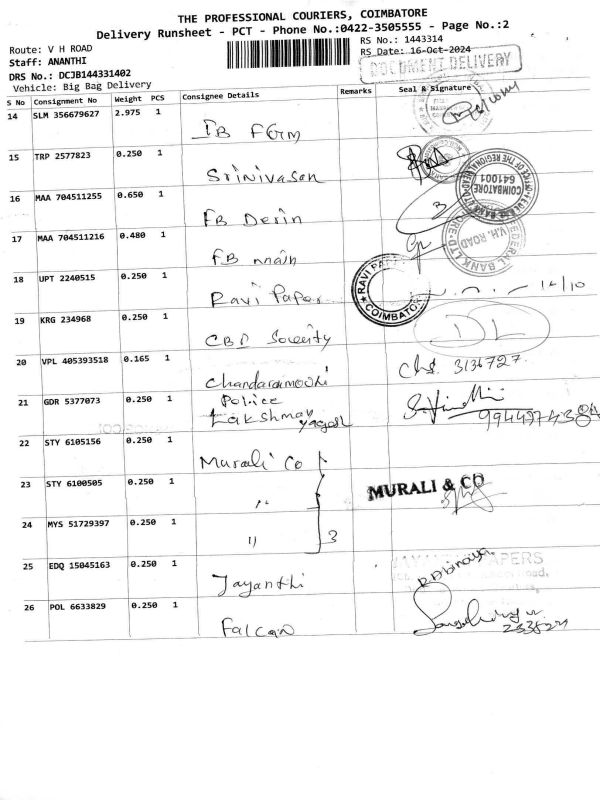 THE PROFESSIONAL COURIERS, COIMBATORE
Delivery Runsheet - PCT - Phone No.:0422-3505555 - Page No.:2
Route: V H ROAD
RS No.: 1443314
Staff: ANANTHI
RS Date: 16-Oct-2024
DRS No.: DCJB144331402
DOCUMENT DELIVERY
Vehicle: Big Bag Delivery
S No Consignment No Weight PCS Consignee Details Remarks Seal & Signature
14 SLM 356679627 2.975 1 IB Farm
15 TRP 2577823 0.250 1 Srinivasan
16 MAA 704511255 0.650 1 FB Derin
COIMBATORE 641001
17 MAA 704511216 0.480 1 FB main
FEDERAL BANK LTD
V.H. ROAD
18 UPT 2240515 0.250 1 Ravi Paper 14/10
RAVI PA
COIMBATO
19 KRG 234968 0.250 1 CBE Soverity DL
20 VPL 405393518 0.165 1 Chandaramoohi 3136727
21 GDR 5377073 0.250 1 Police
Lakshman
22 STY 6105156 0.250 1 Murali Co
23 STY 6100505 0.250 1 "
MURALI & CO
24 MYS 51729397 0.250 1 " 3
25 EDQ 15045163 0.250 1 Jayanthi
PAPERS
R Abinaya
26 POL 6633829 0.250 1 Falcon